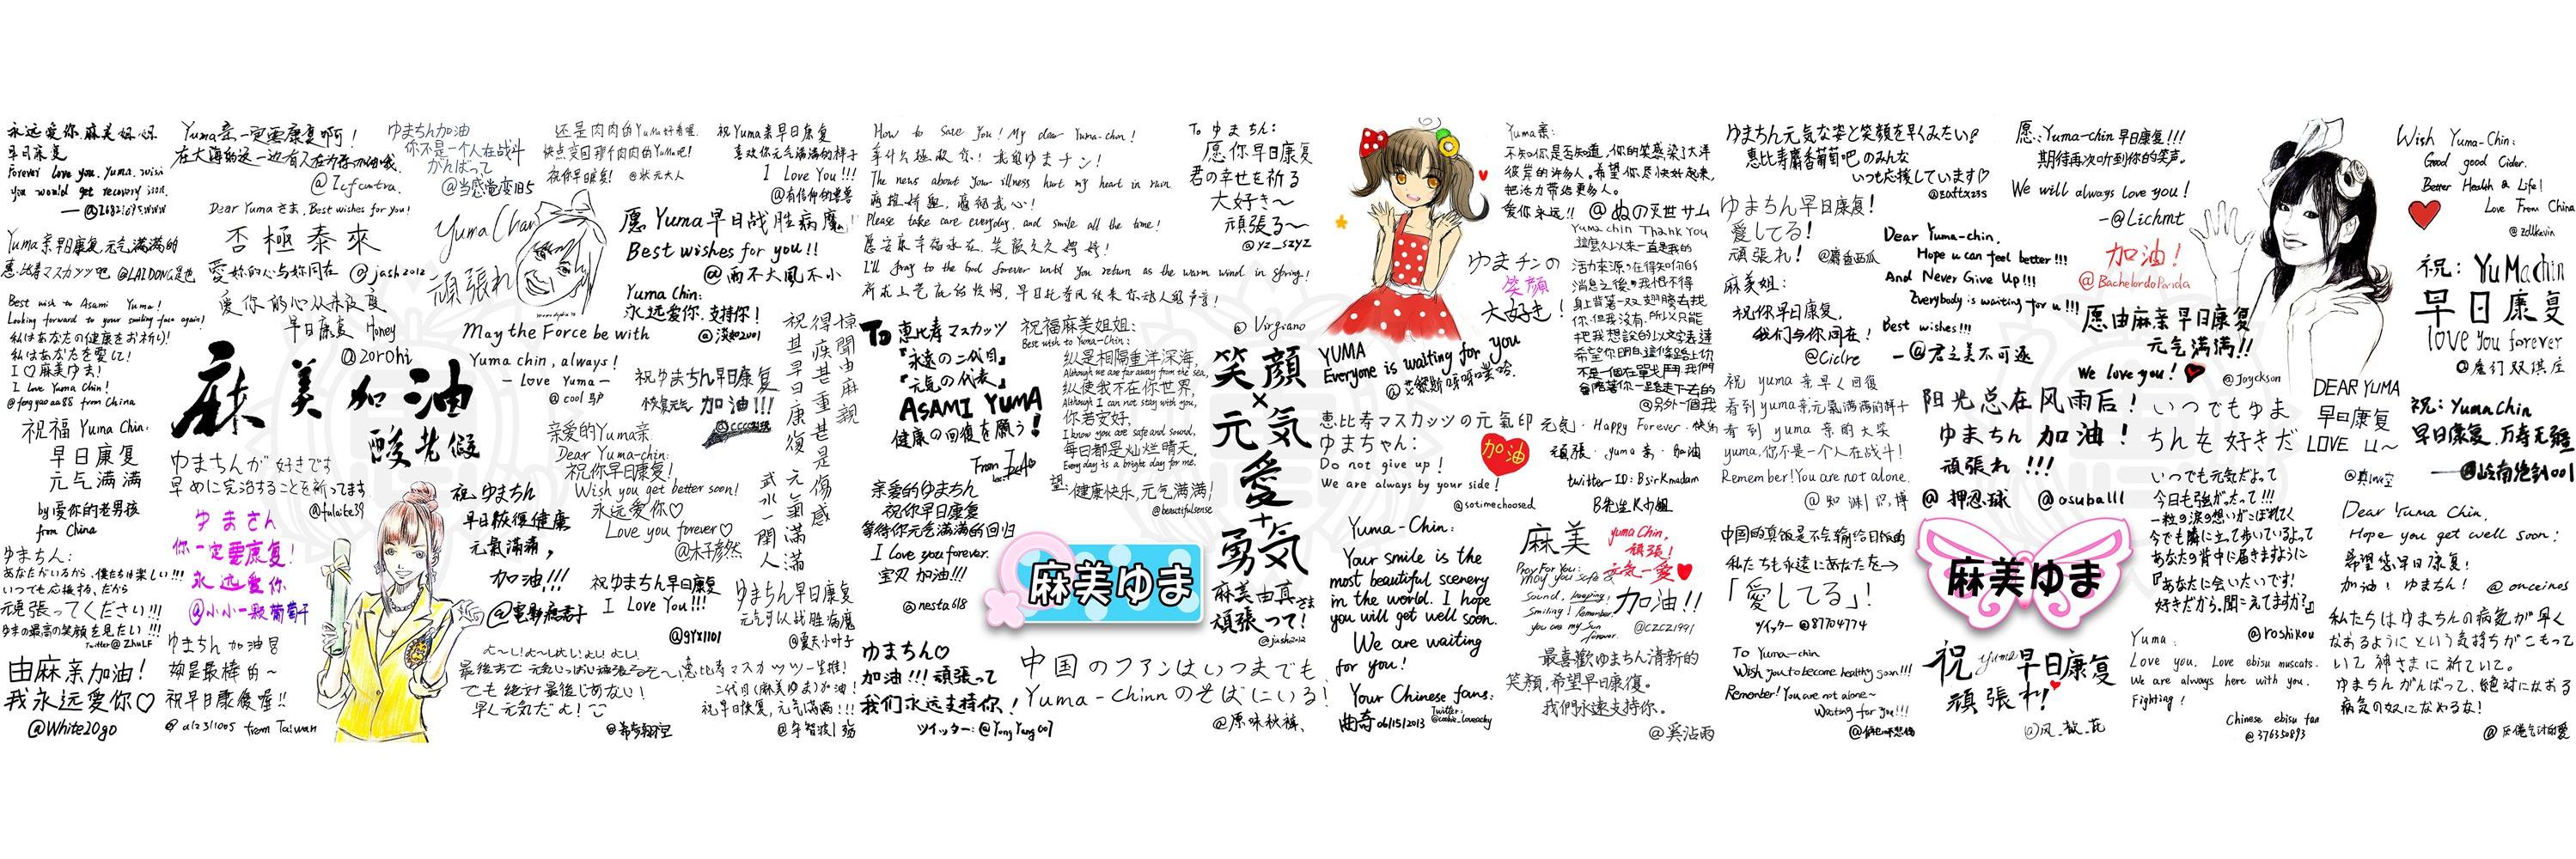 永远爱你.麻美姐姐
早日康复
Forever love you. Yuma. wish
you would get recovery soon.
Yuma亲一定要康复啊！
@Zcfcentra.
ゆまちん加油
你不是一个人在战斗
がんばって
@当感电变旧5
还是肉肉的Yuma好看喔.
快点变回那个肉肉的Yuma吧!
祝你早日康复!
@状元大人
祝Yuma亲早日康复
喜欢你元气满满的样子
I Love You!!!
Dear Yumaさま, Best wishes for you!
否極泰來
愛妳的心与妳同在 @jash2012
Yuma Chan
頑張れ
愿Yuma早日战胜病魔!
Best wishes for you!!
@雨不大風不小
Yuma亲早日康复.元气满满的
恵比寿マスカッツ吧 @LAIDONG是也
Best wish to Asami Yuma!
Looking forward to your smiling face again!
私はあなたの健康をお祈り!
私はあなたを愛して!
I♡麻美ゆま!
I Love Yuma Chin!
@fengyaoaa88 from China
爱你的心从未改变
早日康复 Honey
@zorohi
May the Force be with
Yuma chin, always!
— Love Yuma —
@cool 马户
Yuma Chin:
永远爱你.支持你!
@淡如2001
祝ゆまちん早日康复
恢复元气 加油!!!
驚聞由麻親
得疾甚重甚是傷感
祝甚早日康復 元氣滿滿
武水一閒人
麻美加油
酸老假
祝福Yuma Chin.
早日康复
元气满满
by爱你的老男孩
from China
ゆまちんが好きです
早めに完治することを祈ってます
@fulaite39
亲爱的Yuma亲
Dear Yuma-chin:
祝你早日康复!
Wish you get better soon!
永远爱你♡
Love you forever♡
@木子彦然
ゆまさん
你一定要康复!
永远愛你
@小小一颗葡萄干
祝ゆまちん
早日恢復健康
元氣滿滿，
加油!!!
@電影痴君子
ゆまちん:
あなたがいるから、僕たちは楽しい!!!
いつても応援する、だから
頑張ってください!!!
ゆまの最高の笑顔を見たい!!!
Twitter@ZhuLF
由麻亲加油!
我永远爱你♡
@White20go
ゆまちん 加油
妳是最棒的~
祝早日康復喔!!
@a12311005 from Taiwan
祝ゆまちん早日康复
I Love You!!!
@gyx1101
ゆまちん早日康复
元气可以战胜病魔
@夏天小叶子
よ〜し!よ〜し!よし!よし!よし!
でも絶対最後じゃない!
早く元気だよ!
恵比寿マスカッツ一生推!
二代目(麻美ゆま)加油!
祝早日恢复,元气满满!!!
How to save you! My dear Yuma-chin!
拿什么拯救你!我的ゆまチン!
The news about your illness hurt my heart in ruin.
Please take care everyday. and smile all the time!
I'll pray to the God forever until you return as the warm wind in Spring!
@Virgiano
To 恵比寿マスカッツ
『永遠の二代目』
『元気の代表』
ASAMI YUMA
健康の回復を願う!
祝福麻美姐姐:
Best wish to Yuma-Chin:
纵是相隔重洋深海,
Although we are far away from the sea,
纵使我不在你世界,
Although I can not stay with you,
你若安好,
I know you are safe and sound,
每日都是灿烂晴天,
Every day is a bright day for me.
望:健康快乐,元气满满!
@beautifulsense
亲爱的ゆまちん
祝你早日康复
等待你元气满满的回归
I Love you forever.
宝贝 加油!!!
@nesta618
麻美ゆま
ゆまちん♡
加油!!! 頑張って
我们永远支持你!
ツイッター: @YongYang007
中国のファンはいつまでも
Yuma-Chinnのそばにいる!
@原味秋裤
To ゆまちん:
愿你早日康复
君の幸せを祈る
大好き〜
頑張る〜
@yz_szyz
笑顔
×
元気
愛
+
勇気
麻美由真さま
頑張って!
@jash2012
Yuma亲:
不知你是否知道,你的笑感染了大洋
彼岸的许多人。希望你尽快好起来,
把活力带给更多人。
爱你永远!! @ぬの災世サム
ゆまチンの
笑顔
大好き!
Yuma chin Thank You
這麼久以来一直是我的
活力來源。在得知你的
消息之後。我恨不得
身上背著一双翅膀去找
你.但我沒有.所以只能
把我想說的以文字表達
希望你明白這條路上你
不是一個在單戈鬥.我們
會陪著你一起走下去的
@另外一個我
YUMA
Everyone is waiting for you
恵比寿マスカッツの元氣印
ゆまちゃん:
Do not give up!
We are always by your side!
@sotimechoosed
加油
元気.Happy Forever.快乐
頑張.yuma亲.加油
twitter ID: BsirKmadam
B先生K小姐
Yuma-Chin:
Your smile is the
most beautiful scenery
in the world. I hope
you will get well soon.
We are waiting
for you!
Your Chinese fans:
曲奇 06/15/2013
Twitter:
@cookie_loveacky
麻美
Pray For You:
May you safe &
sound, keeping
smiling! Remember
you are my sun
forever.
yuma Chin,
頑張!
元気一愛♥
加油!!
@CZCZ1991
最喜歡ゆまちん清新的
笑顔,希望早日康復。
我們永遠支持你。
@奚沾雨
ゆまちん元気な姿と笑顔を早くみたい♪
恵比寿麝香葡萄吧のみんな
いつも応援しています♡
@EDXftxz35
ゆまちん早日康复!
愛してる!
頑張れ! @麝香西瓜
麻美姐:
祝你早日康复,
我们与你同在!
@Ciclre
祝 yuma 亲早く回復
看到yuma亲元氣滿滿的样子
看到 yuma 亲的大笑
yuma,你不是一个人在战斗!
Remember! You are not alone.
中国的真飯是不会輸给日饭的
私たちも永遠にあなたを→
「愛してる」!
ツイッター @87704774
To Yuma-chin
Wish you to become healthy soon!!!
Remember! You are not alone~
Waiting for you!!!
愿:Yuma-chin早日康复!!!
期待再次听到你的笑声。
We will always love you!
—@Lichmt
Dear Yuma-chin,
Hope u can feel better!!!
And Never Give Up!!!
Everybody is waiting for u!!!
Best wishes!!!
—@君之美不可逐
加油!
@BachelordoPanda
愿由麻亲早日康复
元气满满!!
We love you!♥
@Joyckson
阳光总在风雨后!
ゆまちん 加油!
頑張れ!!!
@押忍球 @osuball1
麻美ゆま
祝yuma早日康复
頑張れ!
いつでもゆま
ちんを好きだ
いつでも元気だよって
今日も強がったって!!!
一粒の涙の想いがこぼれてく
今でも隣に立って歩いているよって
あなたの背中に届きますように
『あなたに会いたいです!
好きだから。聞こえてますか?』
@roshikou
Yuma:
Love you, Love ebisu muscats.
We are always here with you.
Fighting!
Chinese ebisu fan
@376350893
Wish Yuma-Chin:
Good good Cider.
Better Health & Life!
Love From China
@zollkevin
祝:YuMachin
早日康复
love you forever
DEAR YUMA
早日康复
LOVE U~
祝:YumaChin
早日康复.万寿无疆
Dear Yuma Chin,
Hope you get well soon!
希望您早日康复!
加油! ゆまちん! @onceinos
私たちはゆまちんの病気が早く
なおるようにという気持ちがこもって
いて神さまに祈ていて。
ゆまちんがんばって、絶対になおる
病気の奴になめるな!